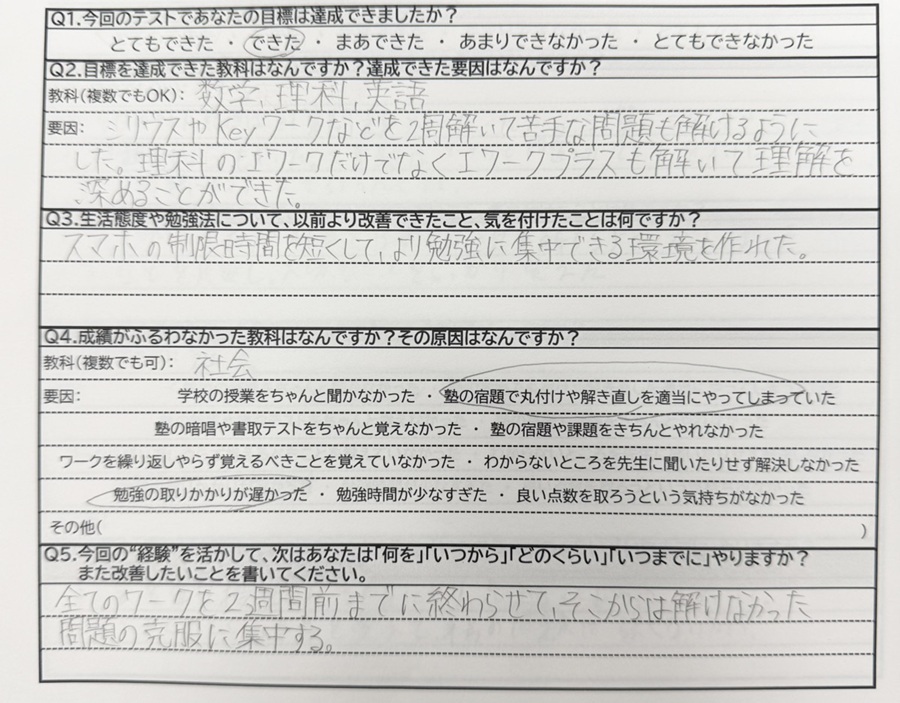 Q1.今回のテストであなたの目標は達成できましたか？
とてもできた ・ できた ・ まあできた ・ あまりできなかった ・ とてもできなかった
Q2.目標を達成できた教科はなんですか？達成できた要因はなんですか？
教科(複数でもOK)： 数学、理科、英語
要因： シリウスやKeyワークなどを2周解いて苦手な問題も解けるように
した。理科のエワークだけでなくエワークプラスも解いて理解を
深めることができた。
Q3.生活態度や勉強法について、以前より改善できたこと、気を付けたことは何ですか？
スマホの制限時間を短くして、より勉強に集中できる環境を作れた。
Q4.成績がふるわなかった教科はなんですか？その原因はなんですか？
教科(複数でも可)： 社会
要因： 学校の授業をちゃんと聞かなかった ・ 塾の宿題で丸付けや解き直しを適当にやってしまっていた
塾の暗唱や書取テストをちゃんと覚えなかった ・ 塾の宿題や課題をきちんとやれなかった
ワークを繰り返しやらず覚えるべきことを覚えていなかった ・ わからないところを先生に聞いたりせず解決しなかった
勉強の取りかかりが遅かった ・ 勉強時間が少なすぎた ・ 良い点数を取ろうという気持ちがなかった
その他( )
Q5.今回の“経験”を活かして、次はあなたは「何を」「いつから」「どのくらい」「いつまでに」やりますか？
また改善したいことを書いてください。
全てのワークを2,3週間前までに終わらせて、そこからは解けなかった
問題の克服に集中する。